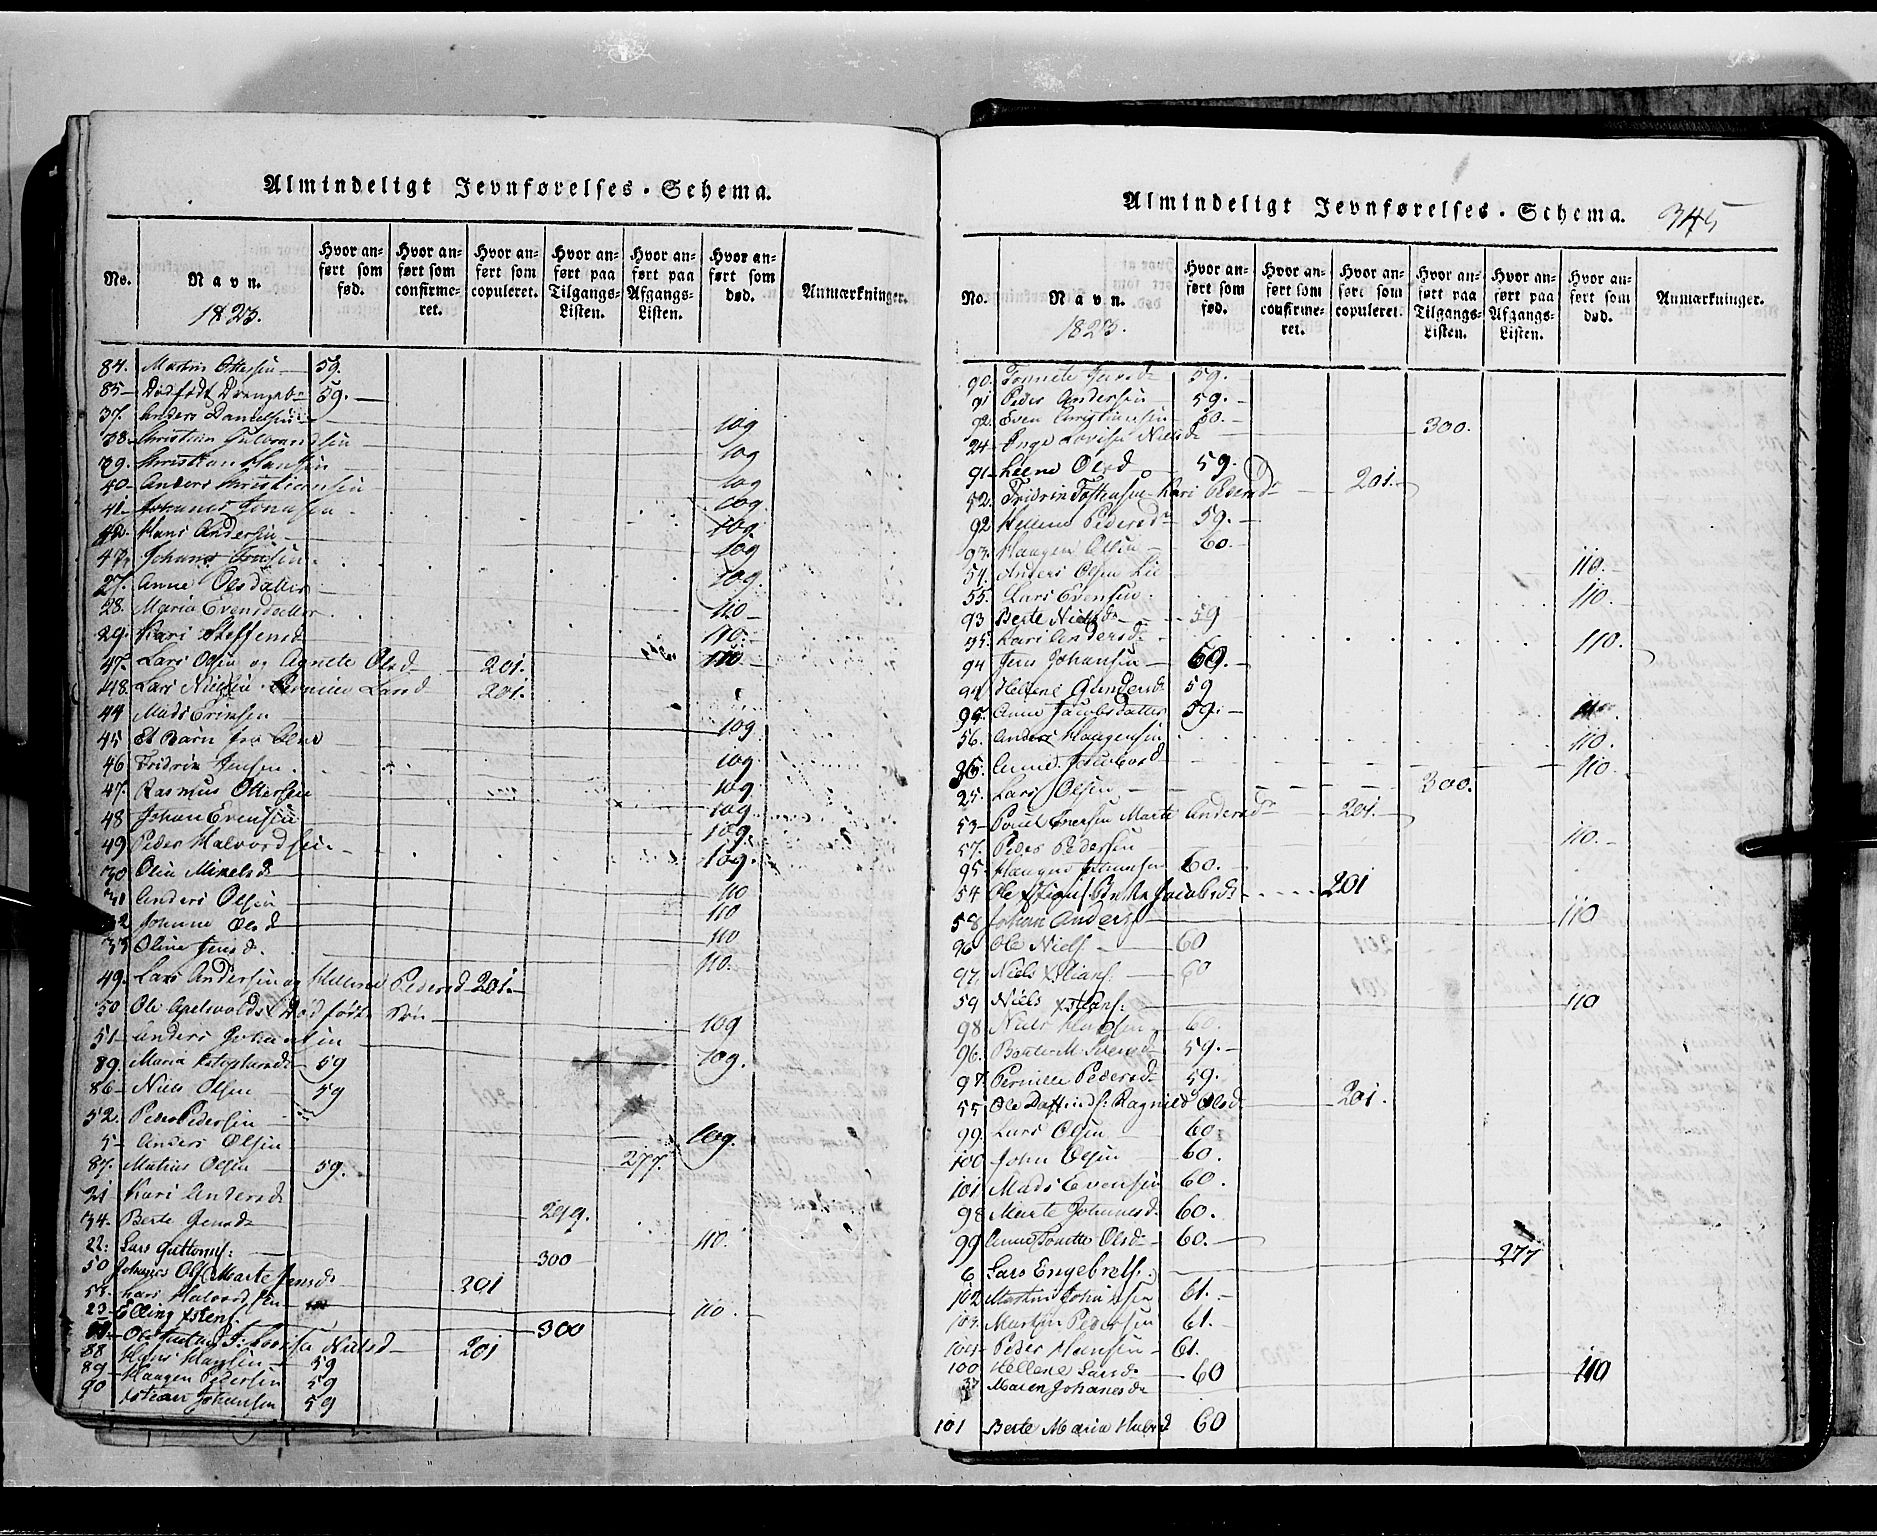 Almindeligt Jevnførelses-Schema.
No. Navn. 1823. Hvor anført som fød. Hvor anført som confirmeret. Hvor anført som copuleret. Hvor anført paa Tilgangs-Listen. Hvor anført paa Afgangs-Listen. Hvor anført som død. Anmærkninger.
84. Martin Ottersen 59.
85 Dødfødt Drengeb 59.
37. Anders Danielsen 109
38. Christian Gulbrandsen 109
39. Christian Hansen 109
40 Anders Christiansen 109
41 Johanes Jonasen 109
42. Hans Andersen 109
43. Johans Jensen 109
27. Anne Olsdatter 110
28. Maria Evensdatter 110.
29. Kari Steffensd 110
47. Lars Olsen og Agnete Olsd 201.
48. Lars Nielsen Pernille Larsd 201.
44 Mads Ericsen 109
45 Et Barn fra Olsd 109
46 Fridrik Jensen 109
47. Rasmus Ottersen 109
48 Johan Evensen 109
49 Peder Halvordsen 109
30 Olia Mikelsd 110
31 Anders Olsen 110
32 Johanne Olsd 110
33 Oline Jensd 110.
49. Lars Andersen og Hellene Pedersd 201.
50 Ole Apelsvolds Dødfødte Søn 109
51 Anders Johansen 109.
89. Maria Kristophersd 59
86 Niels Olsen 59
52. Peder Pedersen 109.
5 Anders Olsen 277.
87. Matius Olsen 59.
21 Kari Andersd 299.
34. Berte Jensd 110.
22. Lars Guttormf: 300
50 Johanes Olf Marte Jensd 201
53. Lars Halvordsen 110.
23 Elling Xstens. 300
Ole Lovisa Nielsd 201
88 Hans Hansen 59
89 Haagen Pedersen 59
90 Xstian Johansen 59
Almindeligt Jevnførelses-Schema. 345
No. Navn. 1823. Hvor anført som fød. Hvor anført som confirmeret. Hvor anført som copuleret. Hvor anført paa Tilgangs-Listen. Hvor anført paa Afgangs-Listen. Hvor anført som død. Anmærkninger.
90. Tonnete Jensd 59.
91 Peder Andersen 59.
92. Even Christiansen 60.
24 Inge Lovisa Nielsd 300.
91 Leene Olsd 59.
52. Fridrik Tostensen Kari Pedersd 201.
92 Hellene Pedersd 59.
93. Haagen Olsen 60.
54. Anders Olsen Lie 110.
55. Lars Evensen 110.
93 Berte Nielsd 59
35. Kari Andersd 110.
94 Jens Johansen 60.
94 Hellene Gundersd 59
95. Anne Jacobsdatter 59.
56. Anders Haagensen 110.
36. Anne Jacobsd 110.
25. Lars Olsen 300.
53 Poul Iversen Marte Andersd 201.
57. Peder Pedersen 110.
95. Haagen Johansen 60.
54 Ole Jacobsd 201
58 Johan Anders 110
96 Ole Nielf 60
97. Niels Xstianf. 60
59 Niels Xstianf. 110
98 Niels Hansen 60.
96. M. Steensd 59.
97. Pernille Pedersd 59.
55 Ole Ragnild Olsd 201.
99. Lars Olsen 60.
100 John Olsen 60.
101 Mads Evensen 60.
98 Marte Johannesd 60.
99 Anne Tonette Olsd 60.
6 Lars Engebretf. 277
102 Martin Johansen 61.
103. Martin Pedersen 61.
104 Peder Hansen 61.
100 Hellene Larsd 60
37 Maren Johanesd 110
101 Berte Maria Halvd 60